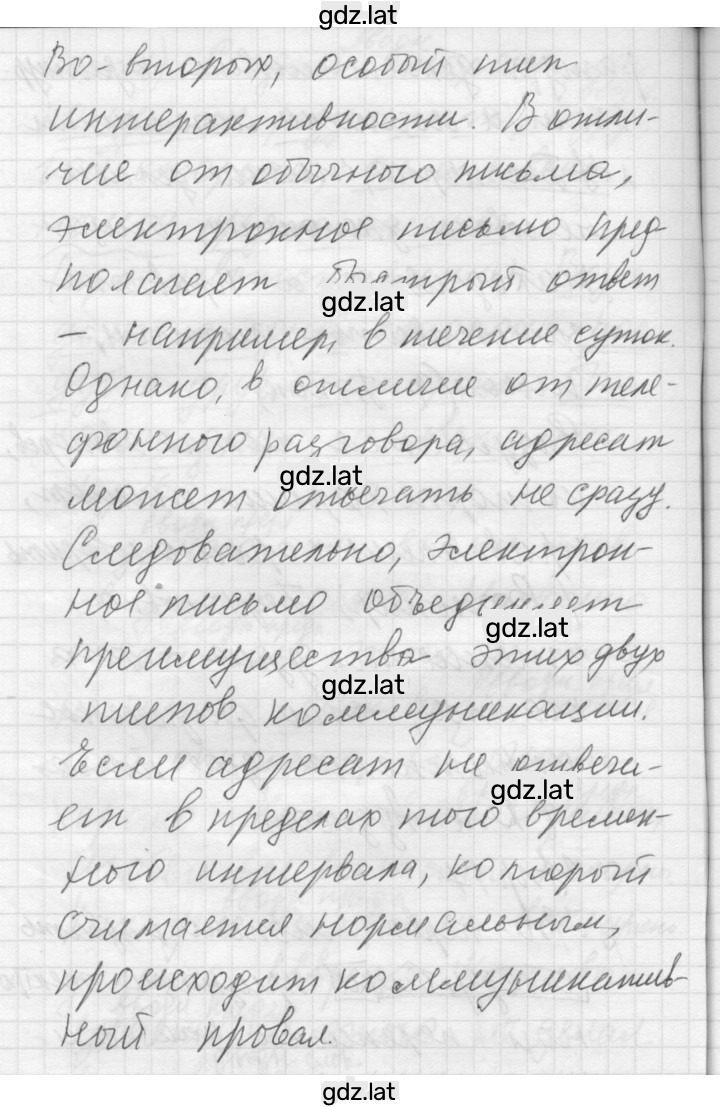 gdz.lat
Во-вторых, особый тип
интерактивности. В отли-
чие от обычного письма,
электронное письмо пред
полагает быстрый ответ
gdz.lat
– например, в течение суток.
Однако, в отличие от теле-
фонного разговора, адресат
gdz.lat
может отвечать не сразу.
Следовательно, электрон-
ное письмо объединяет
gdz.lat
преимущества этих двух
gdz.lat
типов коммуникации.
Если адресат не отвеча-
gdz.lat
ет в пределах того времен-
ного интервала, который
считается нормальным,
происходит коммуникатив-
ный провал.
gdz.lat